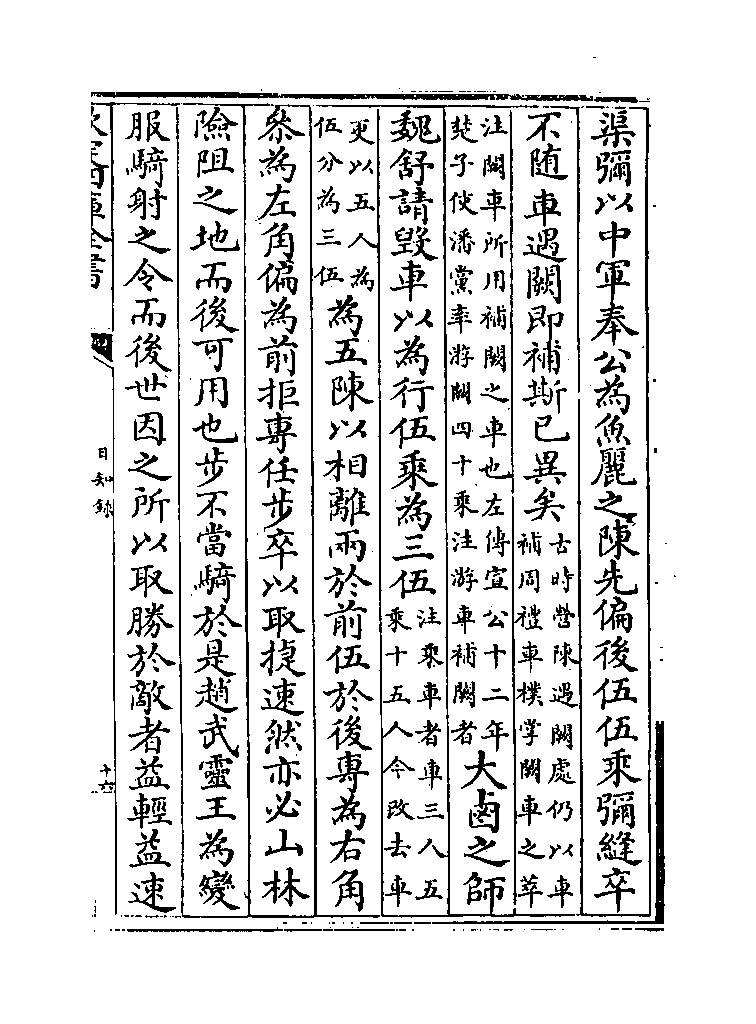 渠彌以中軍奉公為魚麗之陳先偏後伍伍乘彌縫卒
不随車遇闕即補斯已異矣古時營陳遇闕處仍以車
補周禮車樸掌闕車之萃
注闕車所用補闕之車也左傳宣公十二年
楚子使潘黨率游闕四十乘注游車補闕者大鹵之師
魏舒請毁車以為行伍乘為三伍注乘車者車三人五
乘十五人今改去車
更以五人為
伍分為三伍為五陳以相離兩於前伍於後專為右角
叅為左角偏為前拒專任步卒以取捷速然亦必山林
險阻之地而後可用也步不當騎於是趙武靈王為變
服騎射之令而後世因之所以取勝於敵者益輕益速
欽定四庫全書
日知錄
十六